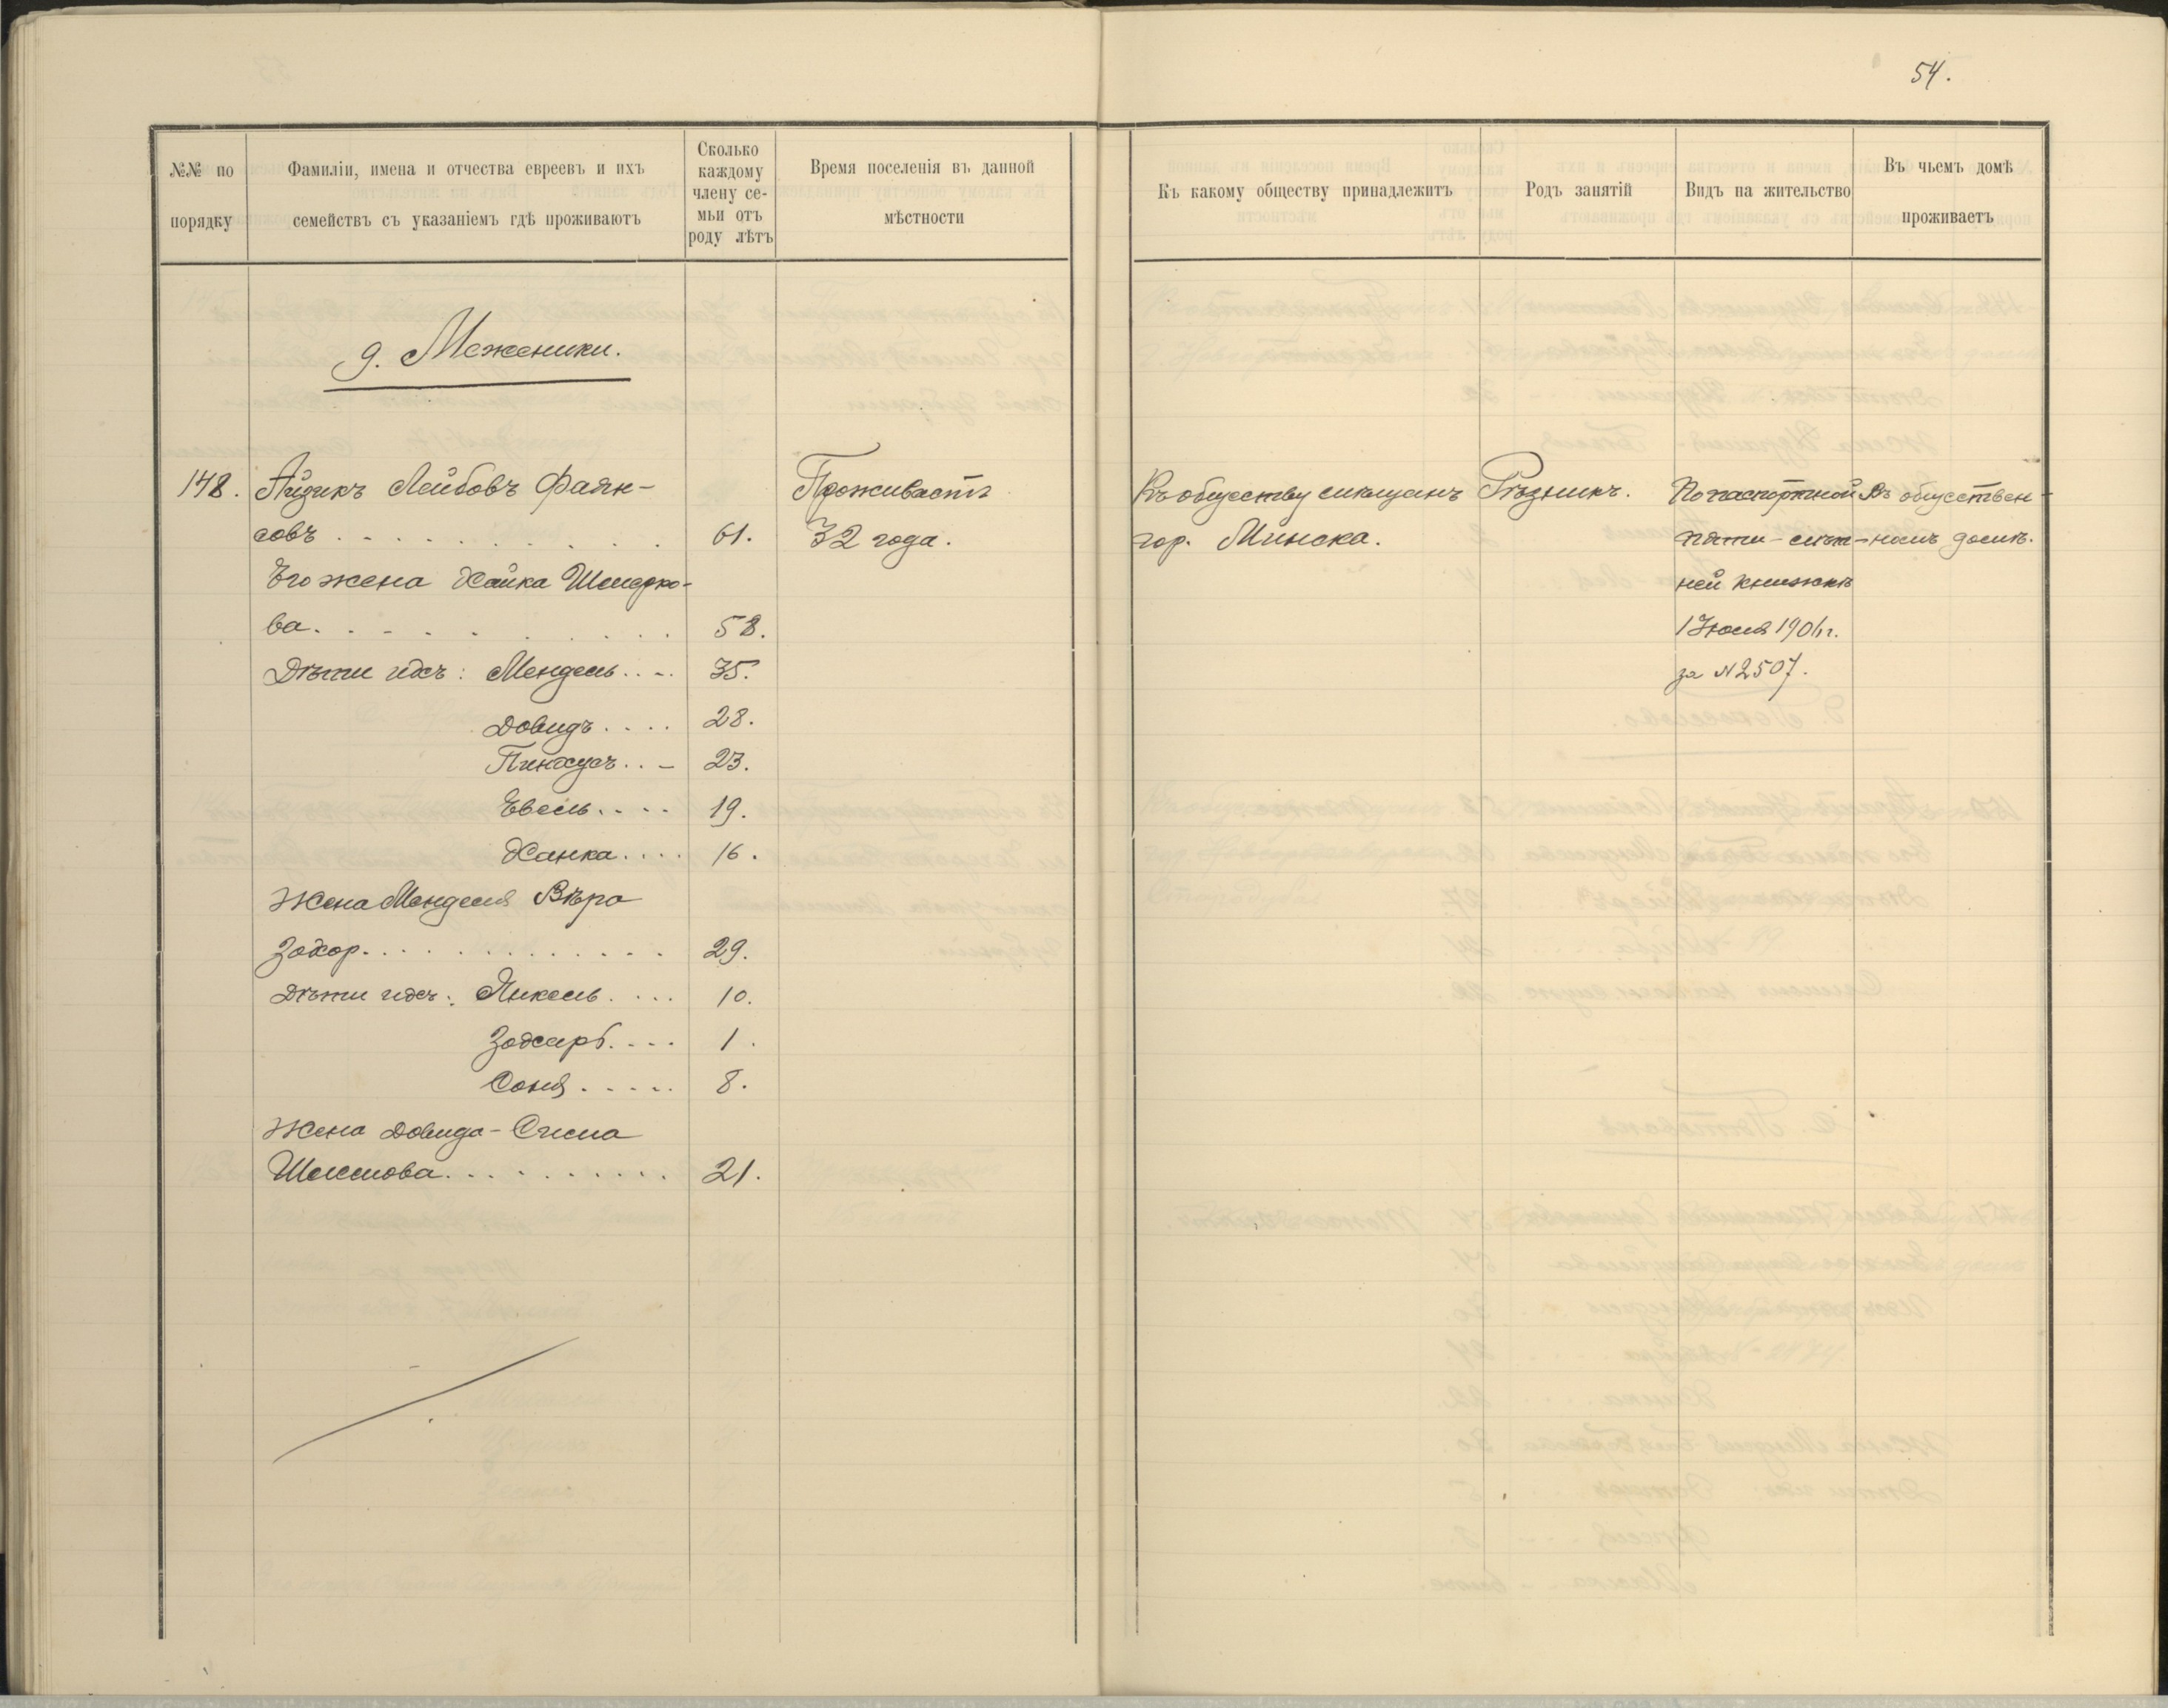 54.
№№ по порядку
Фамиліи, имена и отчества евреевъ и ихъ
семействъ съ указаніемъ гдѣ проживаютъ
Сколько
каждому
члену се-
мьи отъ
роду лѣтъ
Время поселенія въ данной
мѣстности
Къ какому обществу принадлежитъ
Родъ занятій
Видъ на жительство
Въ чьемъ домѣ
проживаетъ
д. Меженики.
148. Айзикъ Лейбовъ Фаян-
совъ 61.
Его жена Хайка Шмерко-
ва 58.
Дѣти ихъ: Мендель 35.
Довидъ 28.
Пинхусъ 23.
Евель 19.
Ханка 16.
Жена Менделя Вѣра
Захор 29.
Дѣти ихъ: Янкель 10.
1.
Соня 8.
Жена Довида-
21.
Проживаетъ
32 года.
Къ обществу мѣщанъ
гор. Минска.
Рѣзникъ.
По паспортной
пяти-лѣт-
ней книжкѣ
1 Июля 1901 г.
за N 2507.
Въ обществен-
номъ домѣ.